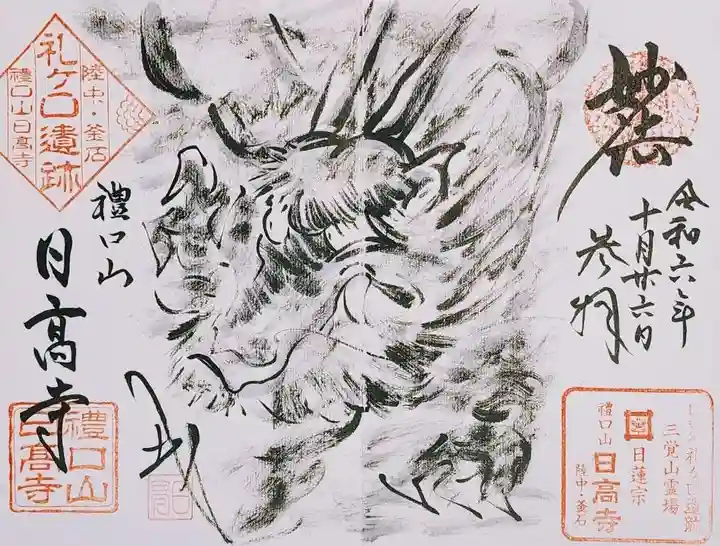 令和六年
十月廿六日
参拝
陸中・釜石
礼ケ口遺跡
禮口山日高寺
禮口山
日高寺
禮口山
日髙寺
三覚山霊場
日蓮宗
禮口山
日高寺
陸中・釜石